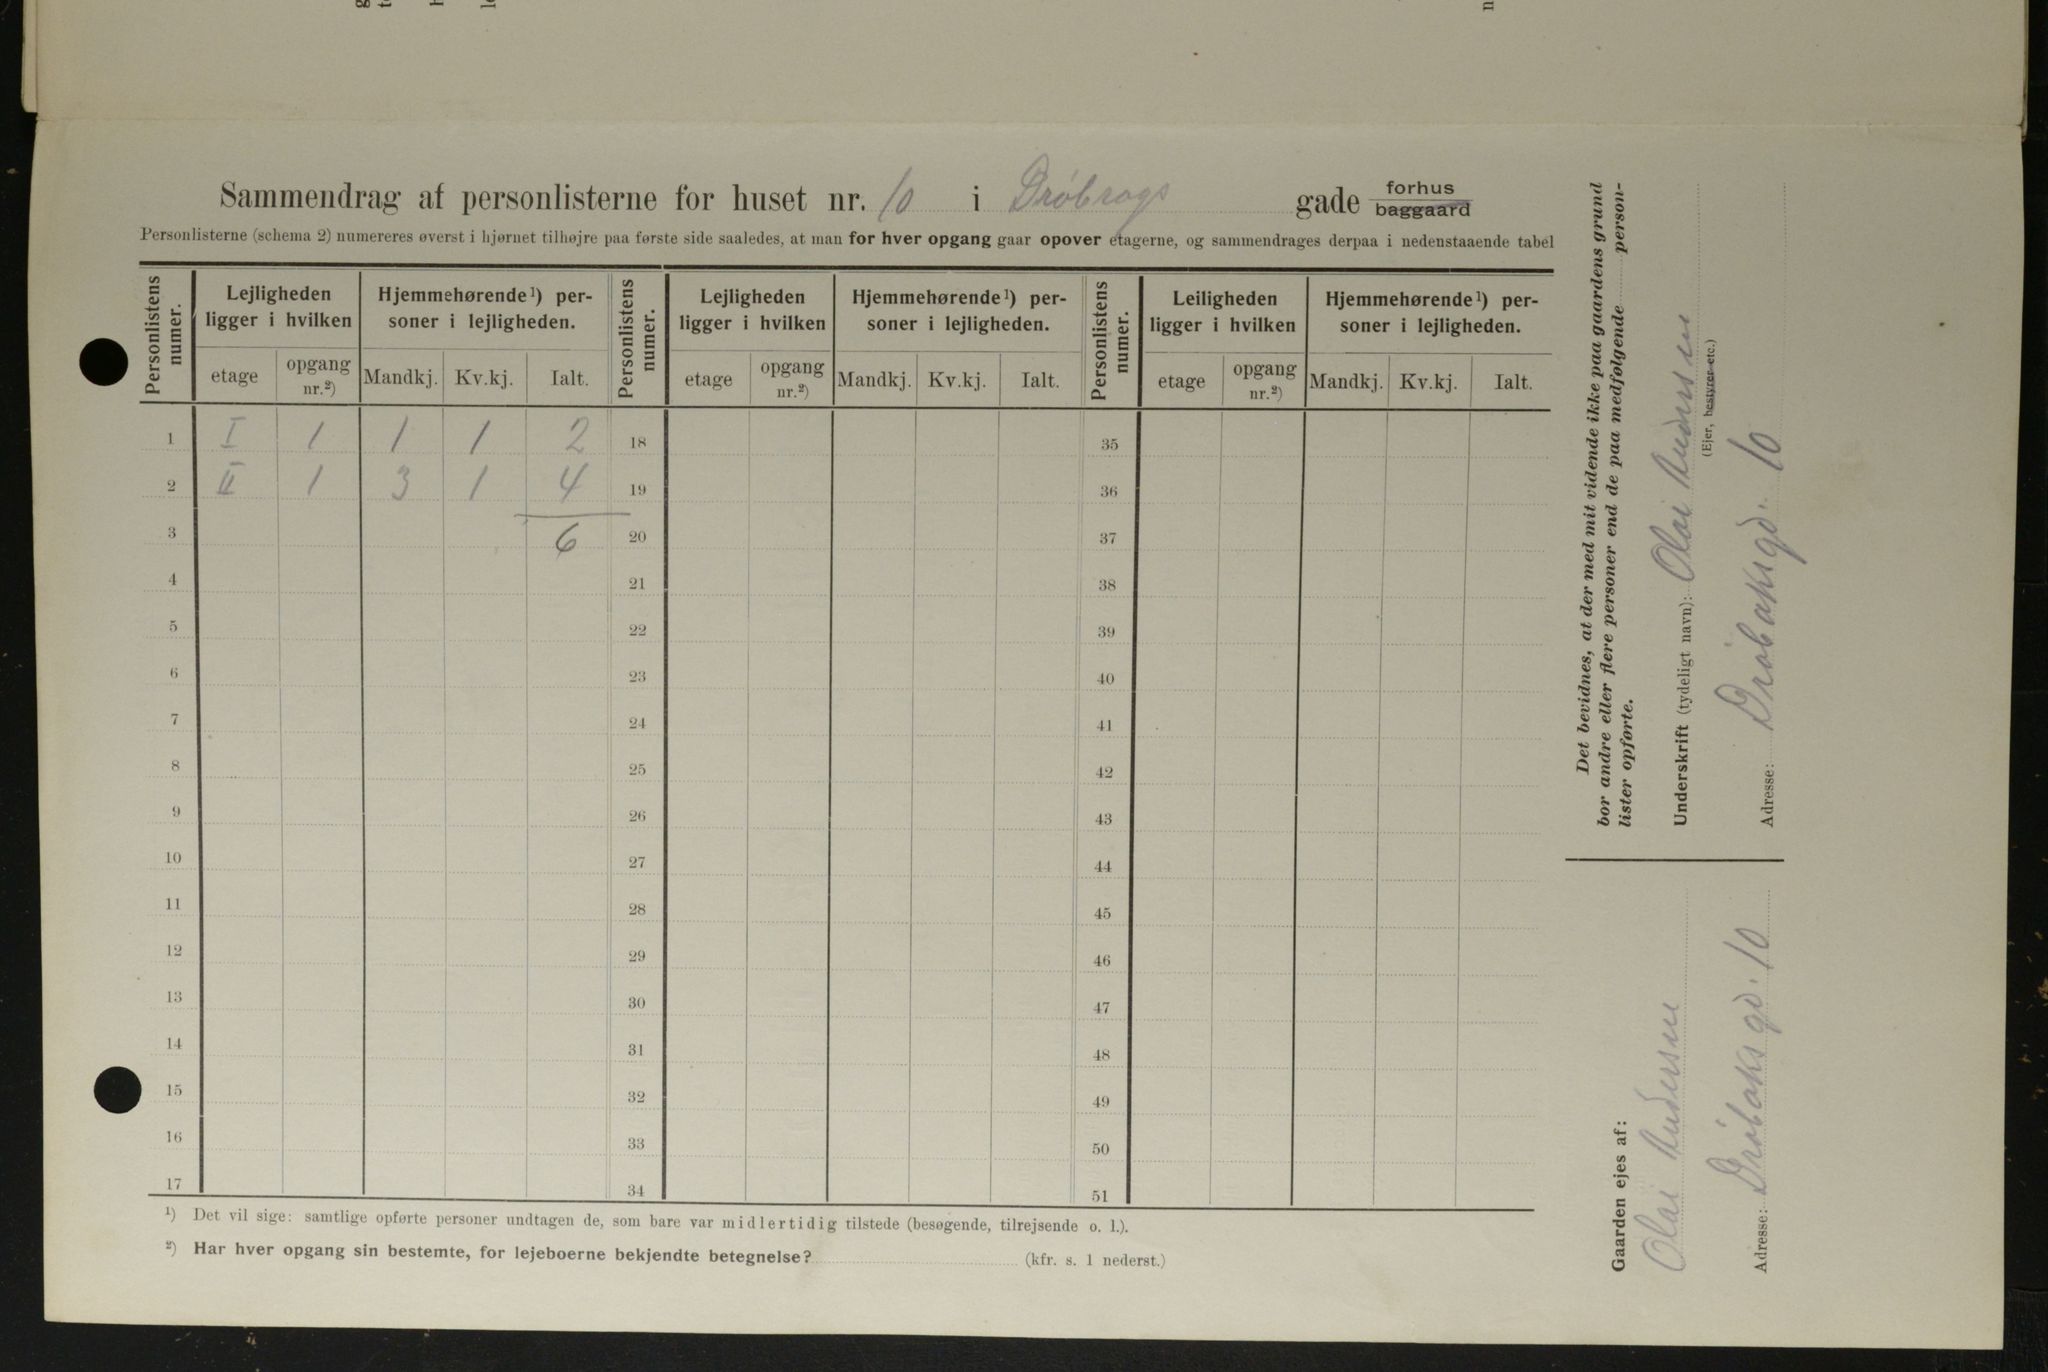 Sammendrag af personlisterne for huset nr. 10 i Drøbrogs gade forhus baggaard
Personlisterne (schema 2) numereres øverst i hjørnet tilhøjre paa første side saaledes, at man for hver opgang gaar opover etagerne, og sammendrages derpaa i nedenstaaende tabel
Personlistens numer.
Lejligheden ligger i hvilken
etage
opgang nr.²)
Hjemmehørende¹) personer i lejligheden.
Mandkj.
Kv.kj.
Ialt.
Personlistens numer.
Lejligheden ligger i hvilken
etage
opgang nr.²)
Hjemmehørende¹) personer i lejligheden.
Mandkj.
Kv.kj.
Ialt.
Personlistens numer.
Leiligheden ligger i hvilken
etage
opgang nr.²)
Hjemmehørende¹) personer i lejligheden.
Mandkj.
Kv.kj.
Ialt.
1 I 1 1 1 2 18 35
2 II 1 3 1 4 19 36
3 6 20 37
4 21 38
5 22 39
6 23 40
7 24 41
8 25 42
9 26 43
10 27 44
11 28 45
12 29 46
13 30 47
14 31 48
15 32 49
16 33 50
17 34 51
¹) Det vil sige: samtlige opførte personer undtagen de, som bare var midlertidig tilstede (besøgende, tilrejsende o. l.).
²) Har hver opgang sin bestemte, for lejeboerne bekjendte betegnelse? (kfr. s. 1 nederst.)
Det bevidnes, at der med mit vidende ikke paa gaardens grund
bor andre eller flere personer end de paa medfølgende person-
lister opførte.
Underskrift (tydeligt navn): Olai Andersen
(Ejer, bestyrer etc.)
Adresse: Drøbaksgd. 10
Gaarden ejes af:
Olai Andersen
Adresse: Drøbaksgd. 10